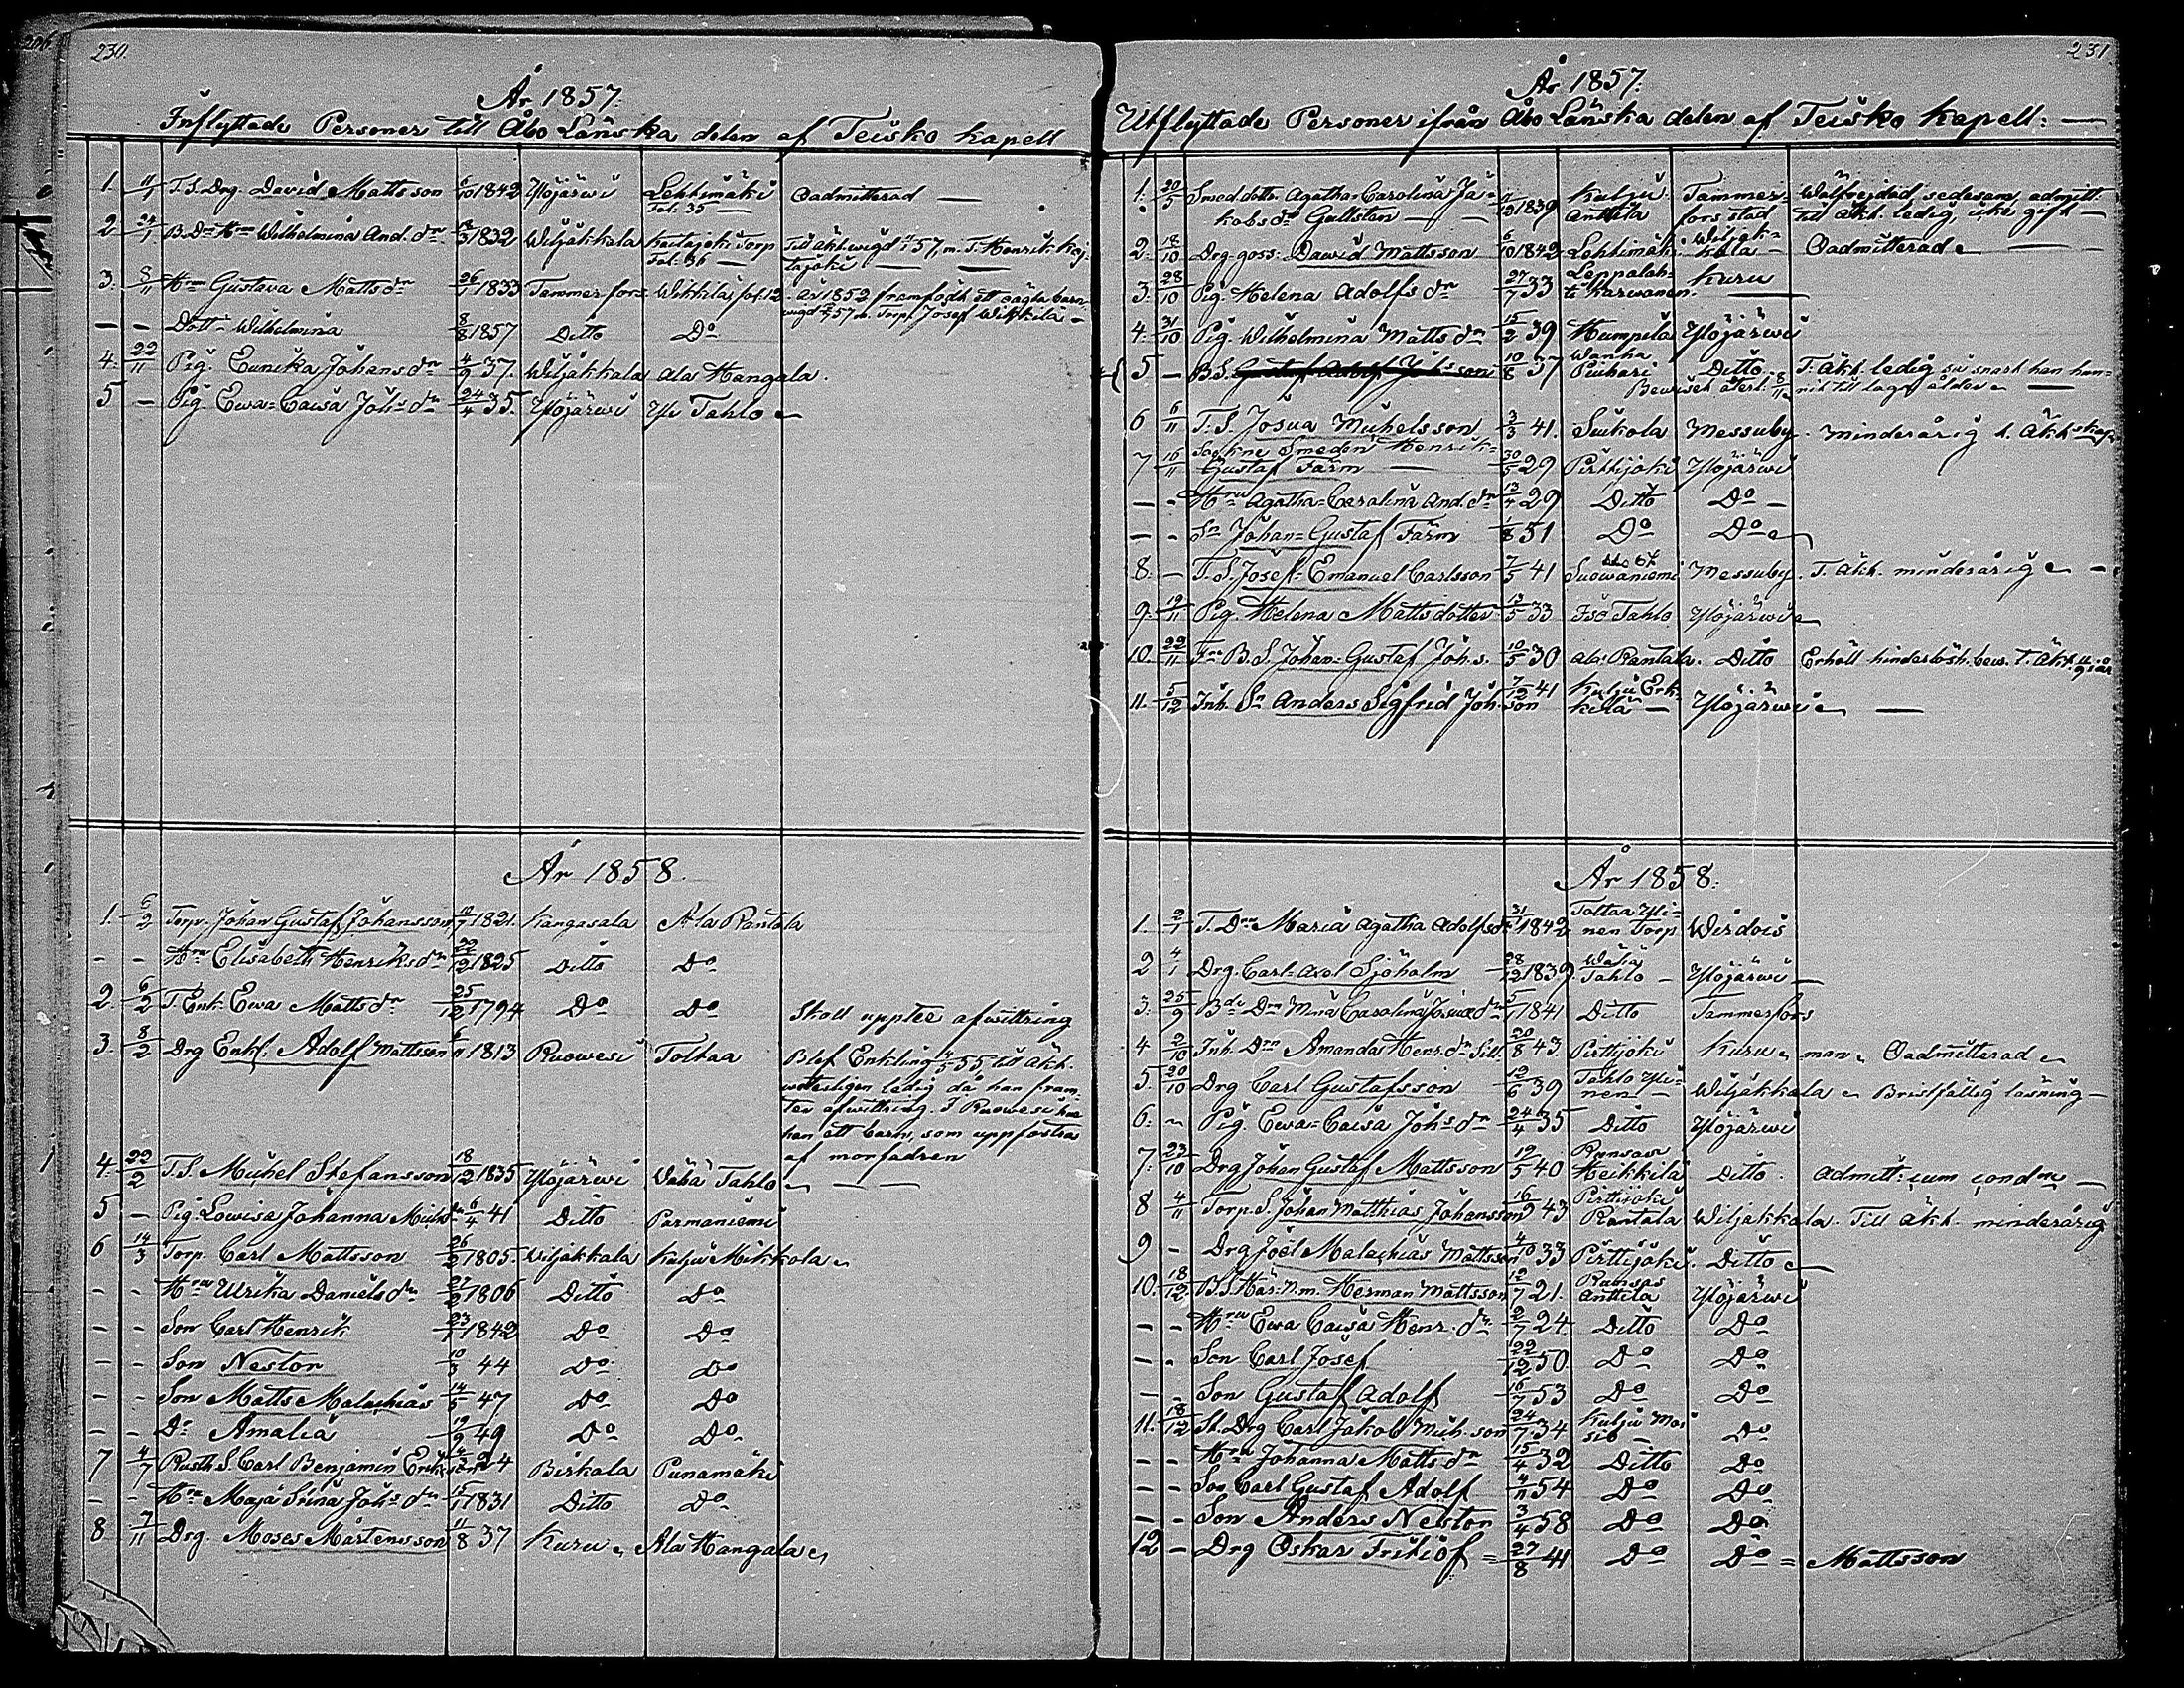 230.
År 1857.
Inflyttade Personer till Åbo Länska delen af Teisko Kapell
1 11/1 T.S. Drg. David Mattsson 6/10 1842 Ylöjärwi Lehtimäki Oadmitterad —
Fol: 35 —
2 24/1 B.Dr Hru Wilhelmina And. dr 1832 Wiljakkala Kaitajoki Torp Till äkt. wigd 57, m. T. Henrik Kai-
Fol: 36 — tajoki — —
3. 8/11 Hru Gustava Mattsdr 26/1 1833 Tammerfors Wikkilä fol. 12. år 1852 framfödt ett oägta barn
wigd 57 m. Torp. Josef Wikkilä —
— — Dottr Wilhelmina 8/8 1857 Ditto Do
4. 22/11 Pig. Eunika Johansdr 4/9 37. Wiljakkala Ala Hangala.
5 — Pig. Ewa-Caisa Johsdr 24/4 35. Ylöjärwi Yli Tahlo
År 1858.
1. 6/2 Torp. Johan Gustaf Johansson 1821. Kangasala Ala Rantala
- - Hru Elisabeth Henriksdr 22/12 1825 Ditto Do
2. 6/2 T. Enk. Ewa Mattsdr 25/12 1794 Do Do
Skall upptee afwittring
3. 8/2 Drg Enkl. Adolf Mattsson 6/11 1813 Ruowesi Toltaa Blef Enkling 55, till äkt.
ledig då han fram-
ter afwittring. I Ruowesi har
han ett barn, som uppfostras
af morfadren
4. 22/2 T.S. Michel Stefansson 18/12 1835 Ylöjärwi Wähä Tahlo — —
5 — Pig. Lowisa Johanna Michsdr 6/4 41 Ditto Parmaniemi
6 14/3 Torp. Carl Mattsson 26/2 1805. Wiljakkala Kulju Mikkola
- - Hru Ulrika Danielsdr 27/2 1806 Ditto Do
- - Son Carl Henrik 23/1 1842 Do Do
- - Son Nestor 10/3 44 Do Do
- - Son Matts Malachias 14/5 47 Do Do
- - Dr Amalia 19/9 49 Do Do
7 4/7 Rusth. S. Carl Benjamin Eriksson 24 Birkala Punamäki
- - Hru Maja Stina Johsdr 15/1 1831 Ditto Do
8 7/11 Drg. Moses Mårtensson 11/8 37 Kuru Ala Hangala
231.
År 1857.
Utflyttade Personer ifrån Åbo Länska delen af Teisko Kapell: —
1. 20/5 Smed. dottr Agatha-Carolina Ja- 11/12 1839 Kulju Tammer- Wälfrejdad, sedesam, admitt.
kobsdr Gullsten — — Anttila fors stad till äkt. ledig, icke gift —
2. 18/10 Drg. goss. Dawid Mattsson 6/10 1842 Lehtimäki Wiljak- Oadmitterad —
kala
3. 28/10 Pig. Helena Adolfsdr 27/7 33 Leppalah- Kuru
ti Karwanen. —
4. 31/10 Pig. Wilhelmina Mattsdr 15/2 39 Humpila Ylöjärwi
5 — B.S. Gustaf Adolf Johsson 10/8 37 Wanha Ditto T. äkt. ledig så snart han hun-
Piuhari Bewiset återl. 8/11 nit till laga ålder —
6 6/11 T.S. Josua Michelsson 3/3 41. Siukola Messuby. Minderårig t. äktskap
7 16/11 Sockne Smeden Henrik-
Gustaf Färm — 30/5 29 Pirttijoki Ylöjärwi
- - Hru Agatha-Carolina And. dr 13/4 29 Ditto Do —
- - Sn Johan-Gustaf Färm 1/8 51 Do Do
8. — T.S. Josef-Emanuel Carlsson 7/5 41 Suowaniemi Messuby. T. äkt. minderårig —
9. 19/11 Pig. Helena Mattsdotter 13/5 33 Iso Tahlo Ylöjärwi
10. 22/11 B.S. Johan-Gustaf Joh.s. 10/5 30 Ala Rantala. Ditto Erhöll hinderlösh. bew. t. äkt.
11. 5/12 Inh. Sn Anders Sigfrid Joh.son 7/12 41 Kulju Erk-
kilä — Ylöjärwi —
År 1858.
1. 2/1 T. Dr Maria Agatha Adolfsdr 31/ 1842 Toltaa Yli-
nen Torp Wirdois
2 4/1 Drg. Carl-Axel Sjöholm 28/12 1839. Wähä
Tahlo — Ylöjärwi —
3. 25/9 Bde Dr Mina Carolina Josuaedr 1841 Ditto Tammerfors
4 2/10 Inh. Dr Amanda Henr. dr Sill. 20/8 43. Pirttijoki Kuru man Oadmitterad
5. 20/10 Drg Carl Gustafsson 12/6 39 Tahlo Yli-
nen — Wiljakkala Bristfällig läsning —
6. Pig. Ewa-Caisa Johsdr 24/4 35 Ditto Ylöjärwi
7. 23/10 Drg Johan Gustaf Mattsson 19/5 40 Heikkilä Ditto. Admitt: cum cond.ne —
8 4/11 Torp. S. Johan Matthias Johansson 16/9 43 Pirttijoki
Rantala Wiljakkala. Till äkt. minderårig
9 - Drg Joël Malachias Mattsson 4/10 33 Pirttijoki. Ditto —
10. 18/12 B.S. Hår. n.m. Herman Mattsson 12/7 21. Ramsas
Anttila Ylöjärwi
- - Hru Ewa Caisa Henr. dr 2/7 24. Ditto Do
- - Son Carl Josef 22/12 50. Do Do
- - Son Gustaf Adolf 16/7 53 Do Do
11. 18/12 St. Drg Carl Jakob Mich.son 24/7 34 Kulju Mai-
sio — Do
- - Hru Johanna Mattsdr 15/4 32 Ditto Do
- - Son Carl Gustaf Adolf 4/11 54 Do Do
- - Son Anders Nestor 3/4 58 Do Do
12 - Drg Oskar Fritiof = 27/8 41 Do Do = Mattsson